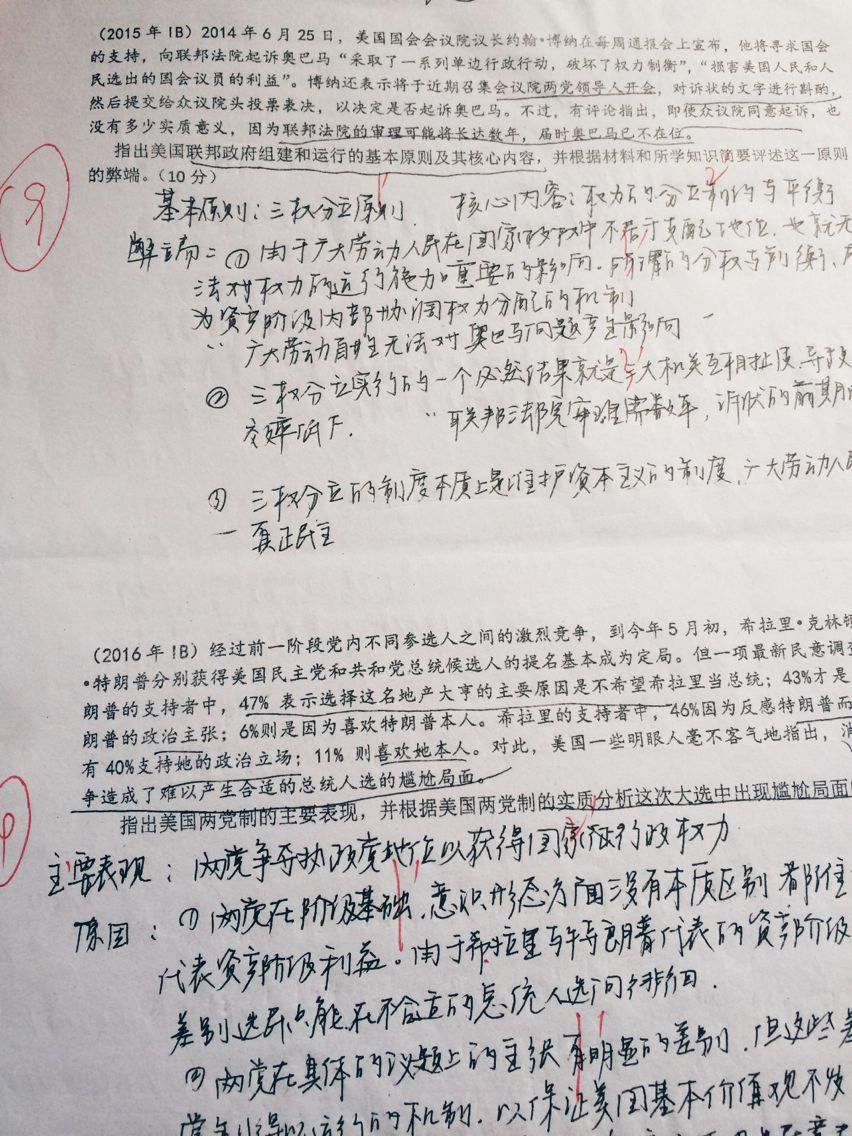 (2015年IB) 2014年6月25日，美国国会会议院议长约翰·博纳在每周通报会上宣布，他将寻求国会
的支持，向联邦法院起诉奥巴马“采取了一系列单边行政行动，破坏了权力制衡”，“损害美国人民和人
民选出的国会议员的利益”。博纳还表示将于近期召集会议院两党领导人开会，对诉状的文字进行斟酌，
然后提交给众议院头投票表决，以决定是否起诉奥巴马。不过，有评论指出，即使众议院同意起诉，也
没有多少实质意义，因为联邦法院的审理可能将长达数年，届时奥巴马已不在位。
指出美国联邦政府组建和运行的基本原则及其核心内容，并根据材料和所学知识简要评述这一原则
的弊端。（10分）
9
基本原则：三权分立原则 核心内容：权力的分立制约与平衡
弊端：① 由于广大劳动人民在国家政权中不居于支配地位，也就无
法对权力的运行施加重要的影响。所谓的分权与制衡，
为资产阶级内部协调权力分配的机制
广大劳动群众无法对奥巴马问题产生影响
② 三权分立实行的一个必然结果就是三大机关互相扯皮，导致
效率低下. 联邦法院审理需数年，诉状的前期
③ 三权分立的制度本质上是维护资本主义的制度，广大劳动人民
真正民主
(2016年IB) 经过前一阶段党内不同参选人之间的激烈竞争，到今年5月初，希拉里·克林顿
·特朗普分别获得美国民主党和共和党总统候选人的提名基本成为定局。但一项最新民意调查
朗普的支持者中，47%表示选择这名地产大亨的主要原因是不希望希拉里当总统；43%才是
朗普的政治主张；6%则是因为喜欢特朗普本人。希拉里的支持者中，46%因为反感特朗普而
有40%支持她的政治立场；11%则喜欢她本人。对此，美国一些明眼人毫不客气地指出，
争造成了难以产生合适的总统人选的尴尬局面。
指出美国两党制的主要表现，并根据美国两党制的实质分析这次大选中出现尴尬局面
主要表现：两党争夺执政党地位以获得国家行政权力
原因：① 两党在阶级基础，意识形态方面没有本质区别 都
代表资产阶级利益。由于希拉里与特朗普代表的资产阶级
差别选民只能在不合适的总统人选间徘徊.
② 两党在具体的议题上的主张有明显的差别，但这些差
的机制，以保证美国基本价值观不发